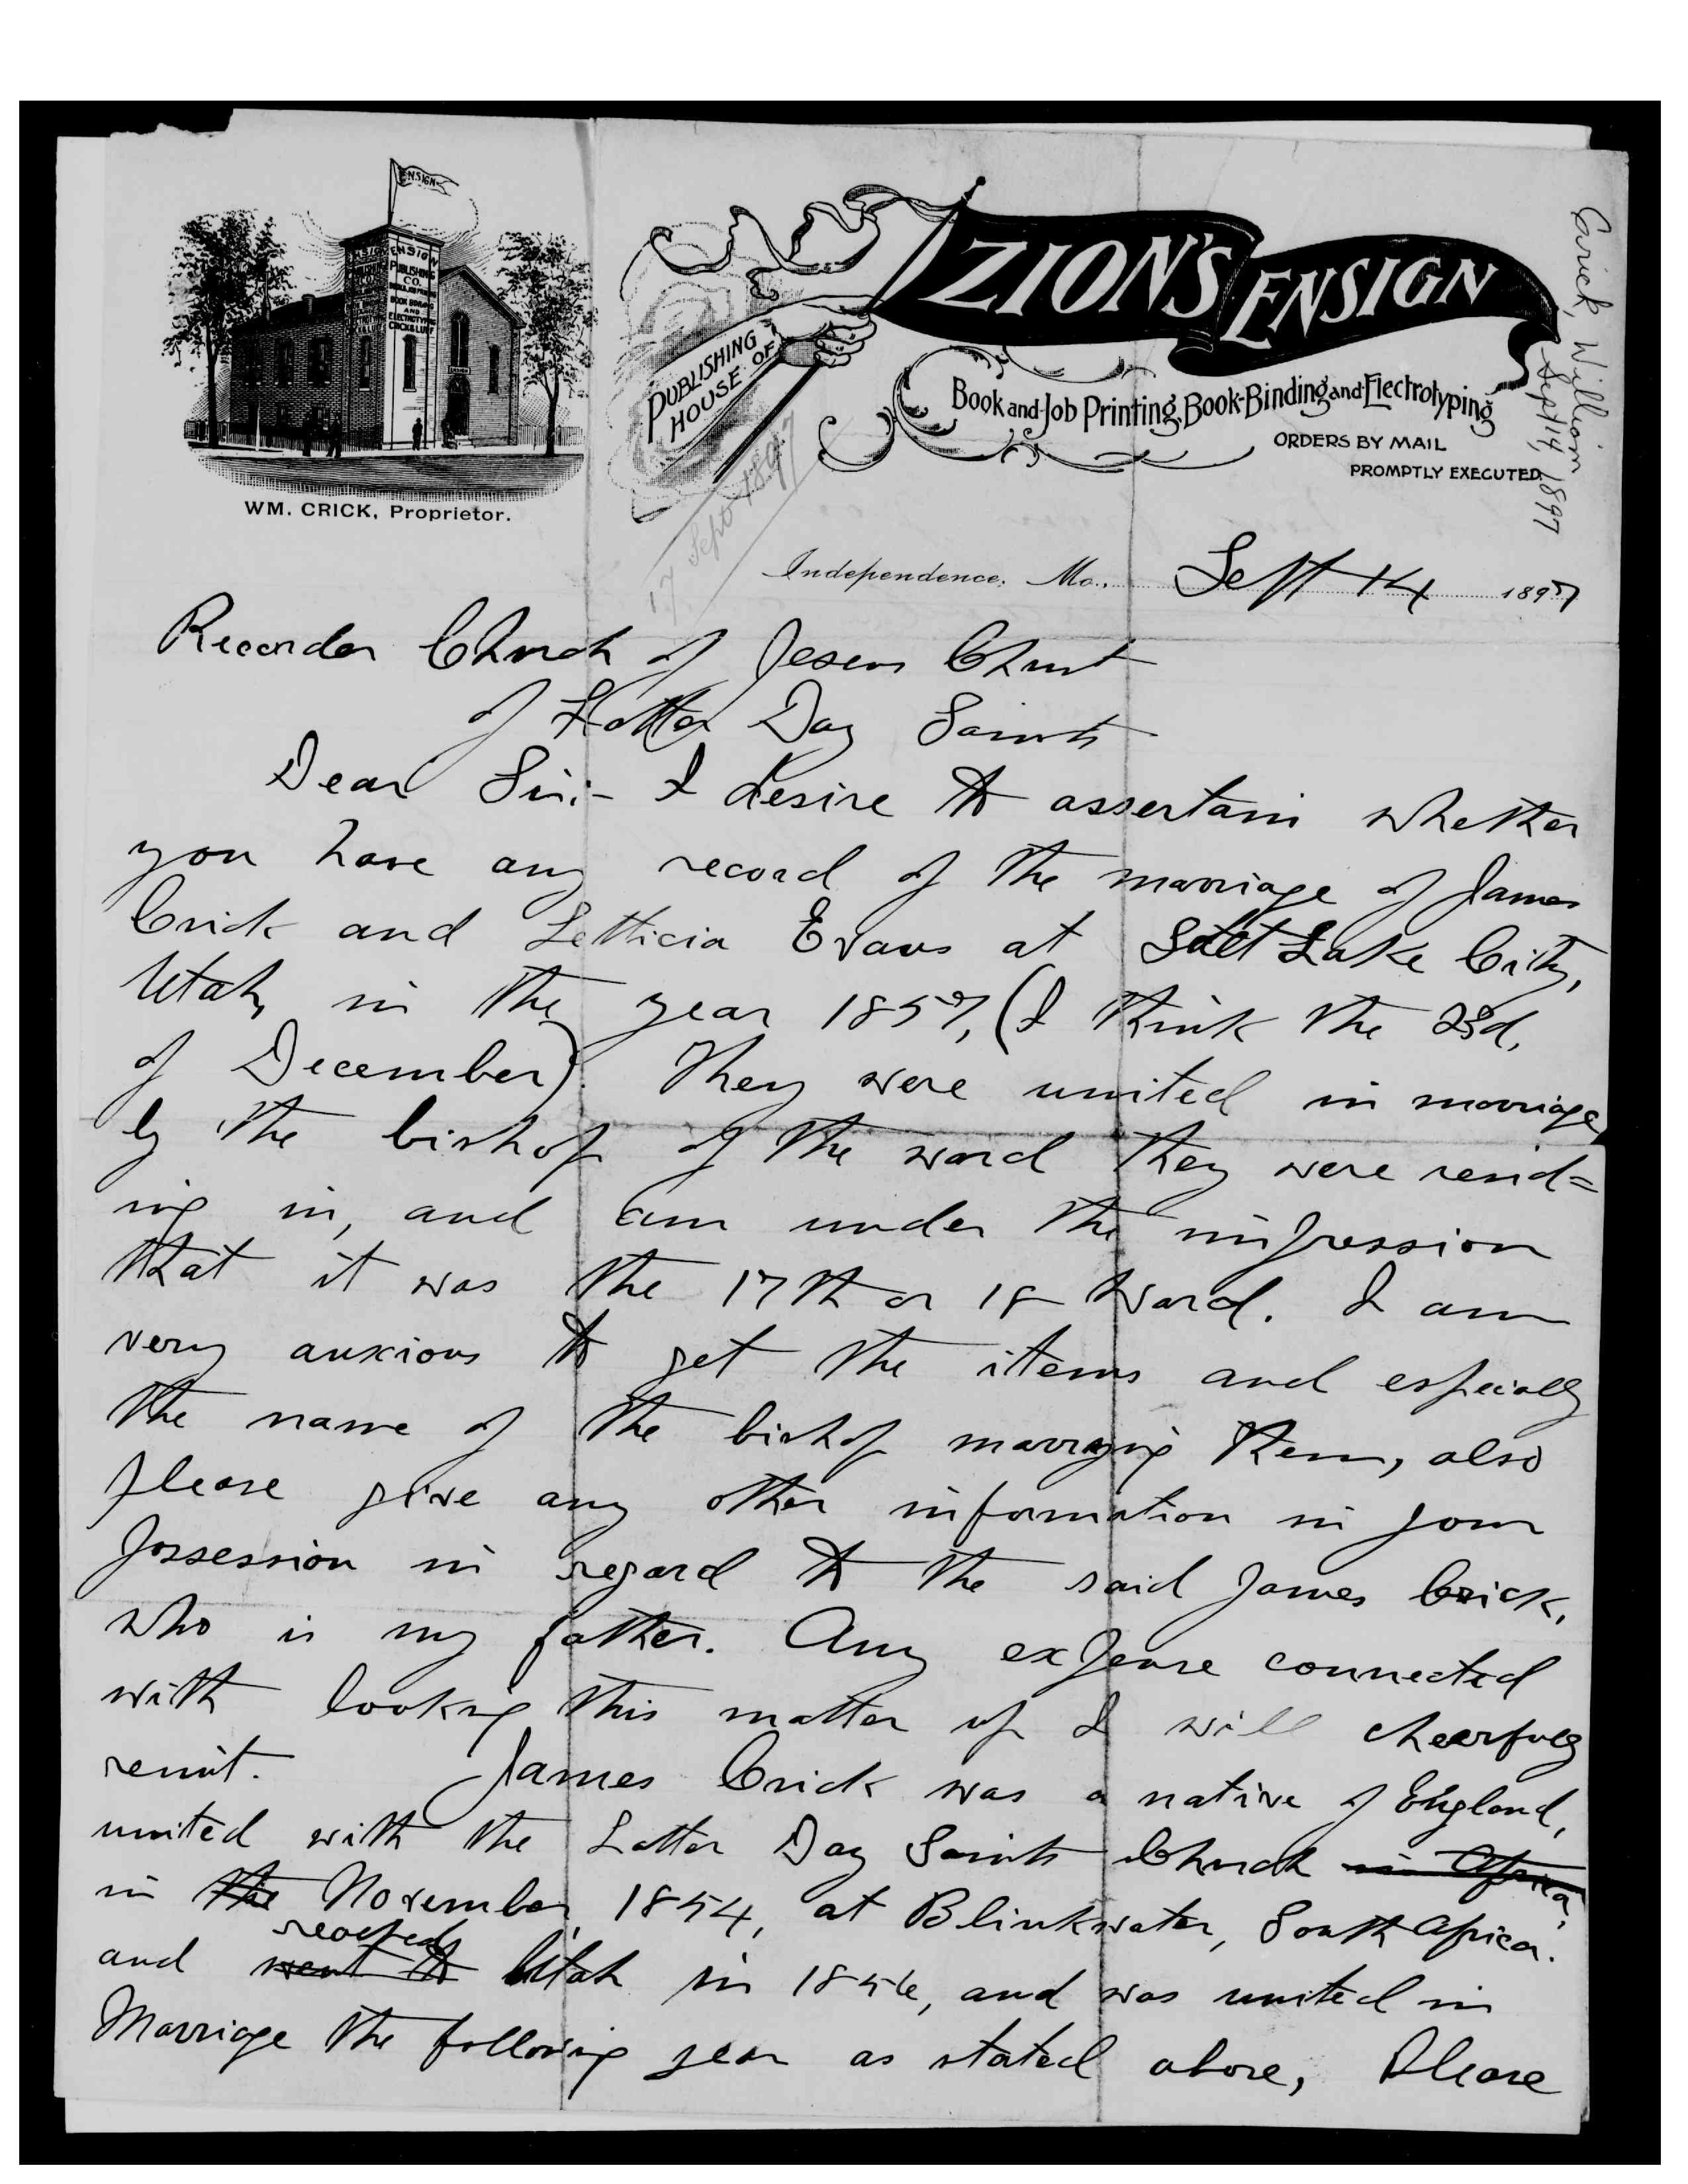 ENSIGN
ENSIGN
PUBLISHING
CO.
BOOK BINDING
AND
ELECTROTYPING
CRICK & LUFF
WM. CRICK, Proprietor.
PUBLISHING
HOUSE OF
ZION'S ENSIGN
Book and Job Printing, Book-Binding and Electrotyping
ORDERS BY MAIL
PROMPTLY EXECUTED
Crick, William
Sept 14, 1897
17 Sept 1897
Independence, Mo., Sept 14 1897
Recorder Church of Jesus Christ
of Latter Day Saints
Dear Sir:- I desire to assertain whether
you have any record of the marriage of James
Crick and Letticia Evans at Salt Lake City,
Utah, in the year 1857, (I think the 23d,
of December). They were united in marriage
by the bishop of the ward they were resid=
ing in, and am under the impression
that it was the 17th or 18 Ward. I am
very anxious to get the items and especially
the name of the bishop marrying them, also
please give any other information in your
possession in regard to the said James Crick,
who is my father. Any expense connected
with looking this matter up I will cheerfully
remit. James Crick was a native of England,
united with the Latter Day Saints Church in Africa,
in the November, 1854, at Blinkwater, South Africa.
reached
and went to Utah in 1856, and was united in
Marriage the following year as stated above, Please